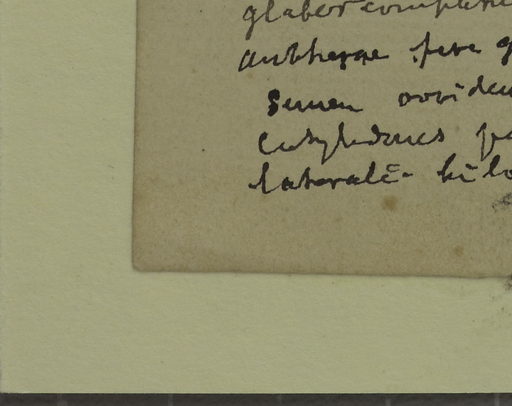 glaber comp
antherae fere
Semen ovoideu
Cotyledones
laterale hilo